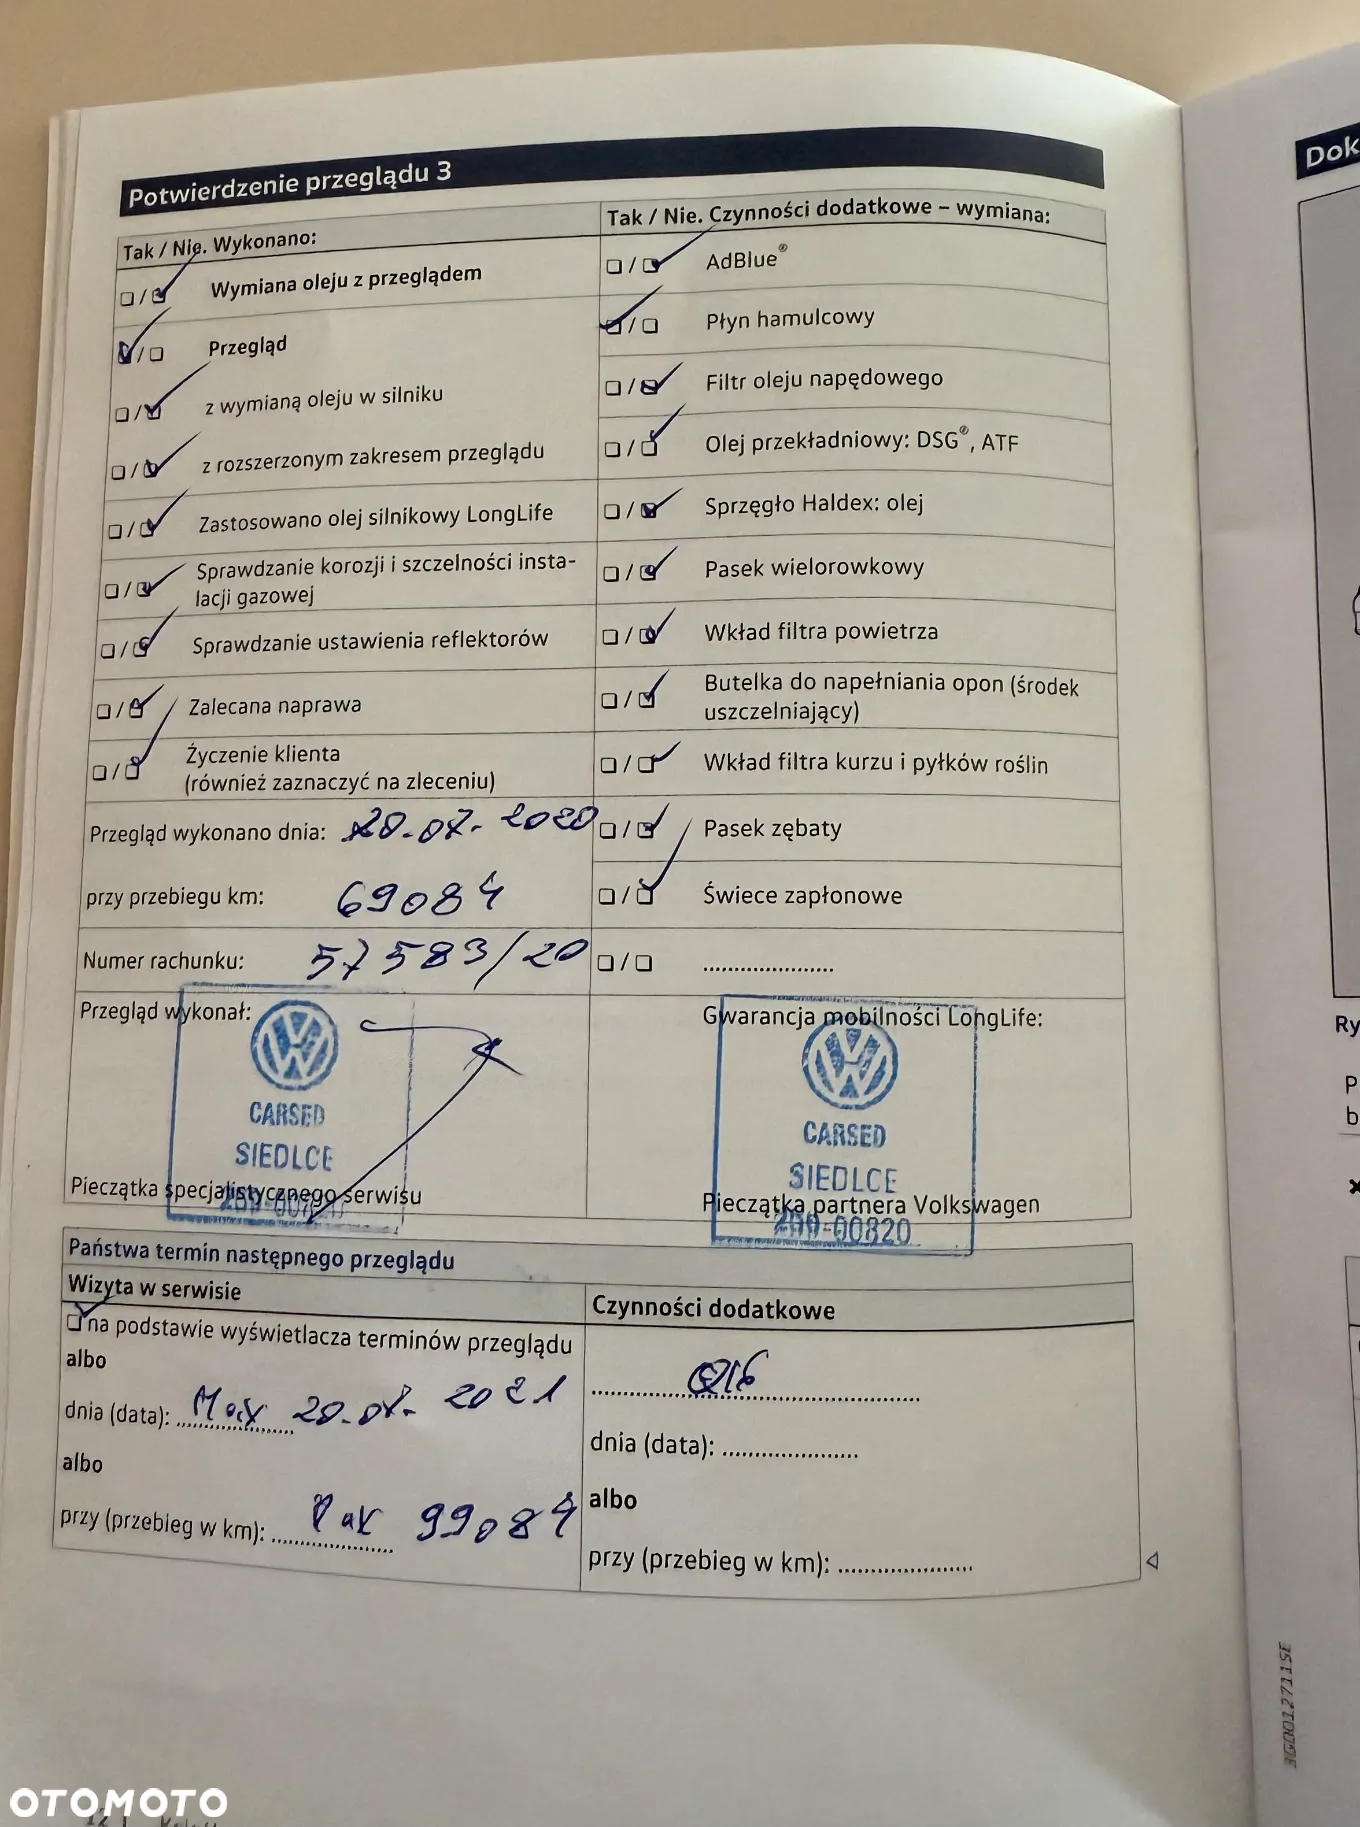 Potwierdzenie przeglądu 3
Dok
Tak / Nie. Wykonano:
Wymiana oleju z przeglądem
Przegląd
z wymianą oleju w silniku
z rozszerzonym zakresem przeglądu
Zastosowano olej silnikowy LongLife
Sprawdzanie korozji i szczelności insta-
lacji gazowej
Sprawdzanie ustawienia reflektorów
Zalecana naprawa
Życzenie klienta
(również zaznaczyć na zleceniu)
Przegląd wykonano dnia: 20.07.2020
przy przebiegu km: 69084
Numer rachunku: 57583/20
Tak / Nie. Czynności dodatkowe – wymiana:
AdBlue®
Płyn hamulcowy
Filtr oleju napędowego
Olej przekładniowy: DSG®, ATF
Sprzęgło Haldex: olej
Pasek wielorowkowy
Wkład filtra powietrza
Butelka do napełniania opon (środek
uszczelniający)
Wkład filtra kurzu i pyłków roślin
Pasek zębaty
Świece zapłonowe
Przegląd wykonał:
CARSED
SIEDLCE
Pieczątka specjalistycznego serwisu
Gwarancja mobilności LongLife:
CARSED
SIEDLCE
Pieczątka partnera Volkswagen
200-00820
Państwa termin następnego przeglądu
Wizyta w serwisie
na podstawie wyświetlacza terminów przeglądu
albo
dnia (data): Max 20.07.2021
albo
przy (przebieg w km): 99084
Czynności dodatkowe
dnia (data):
albo
przy (przebieg w km):
Ry
P
b
3G0012711SE
OTOMOTO
12